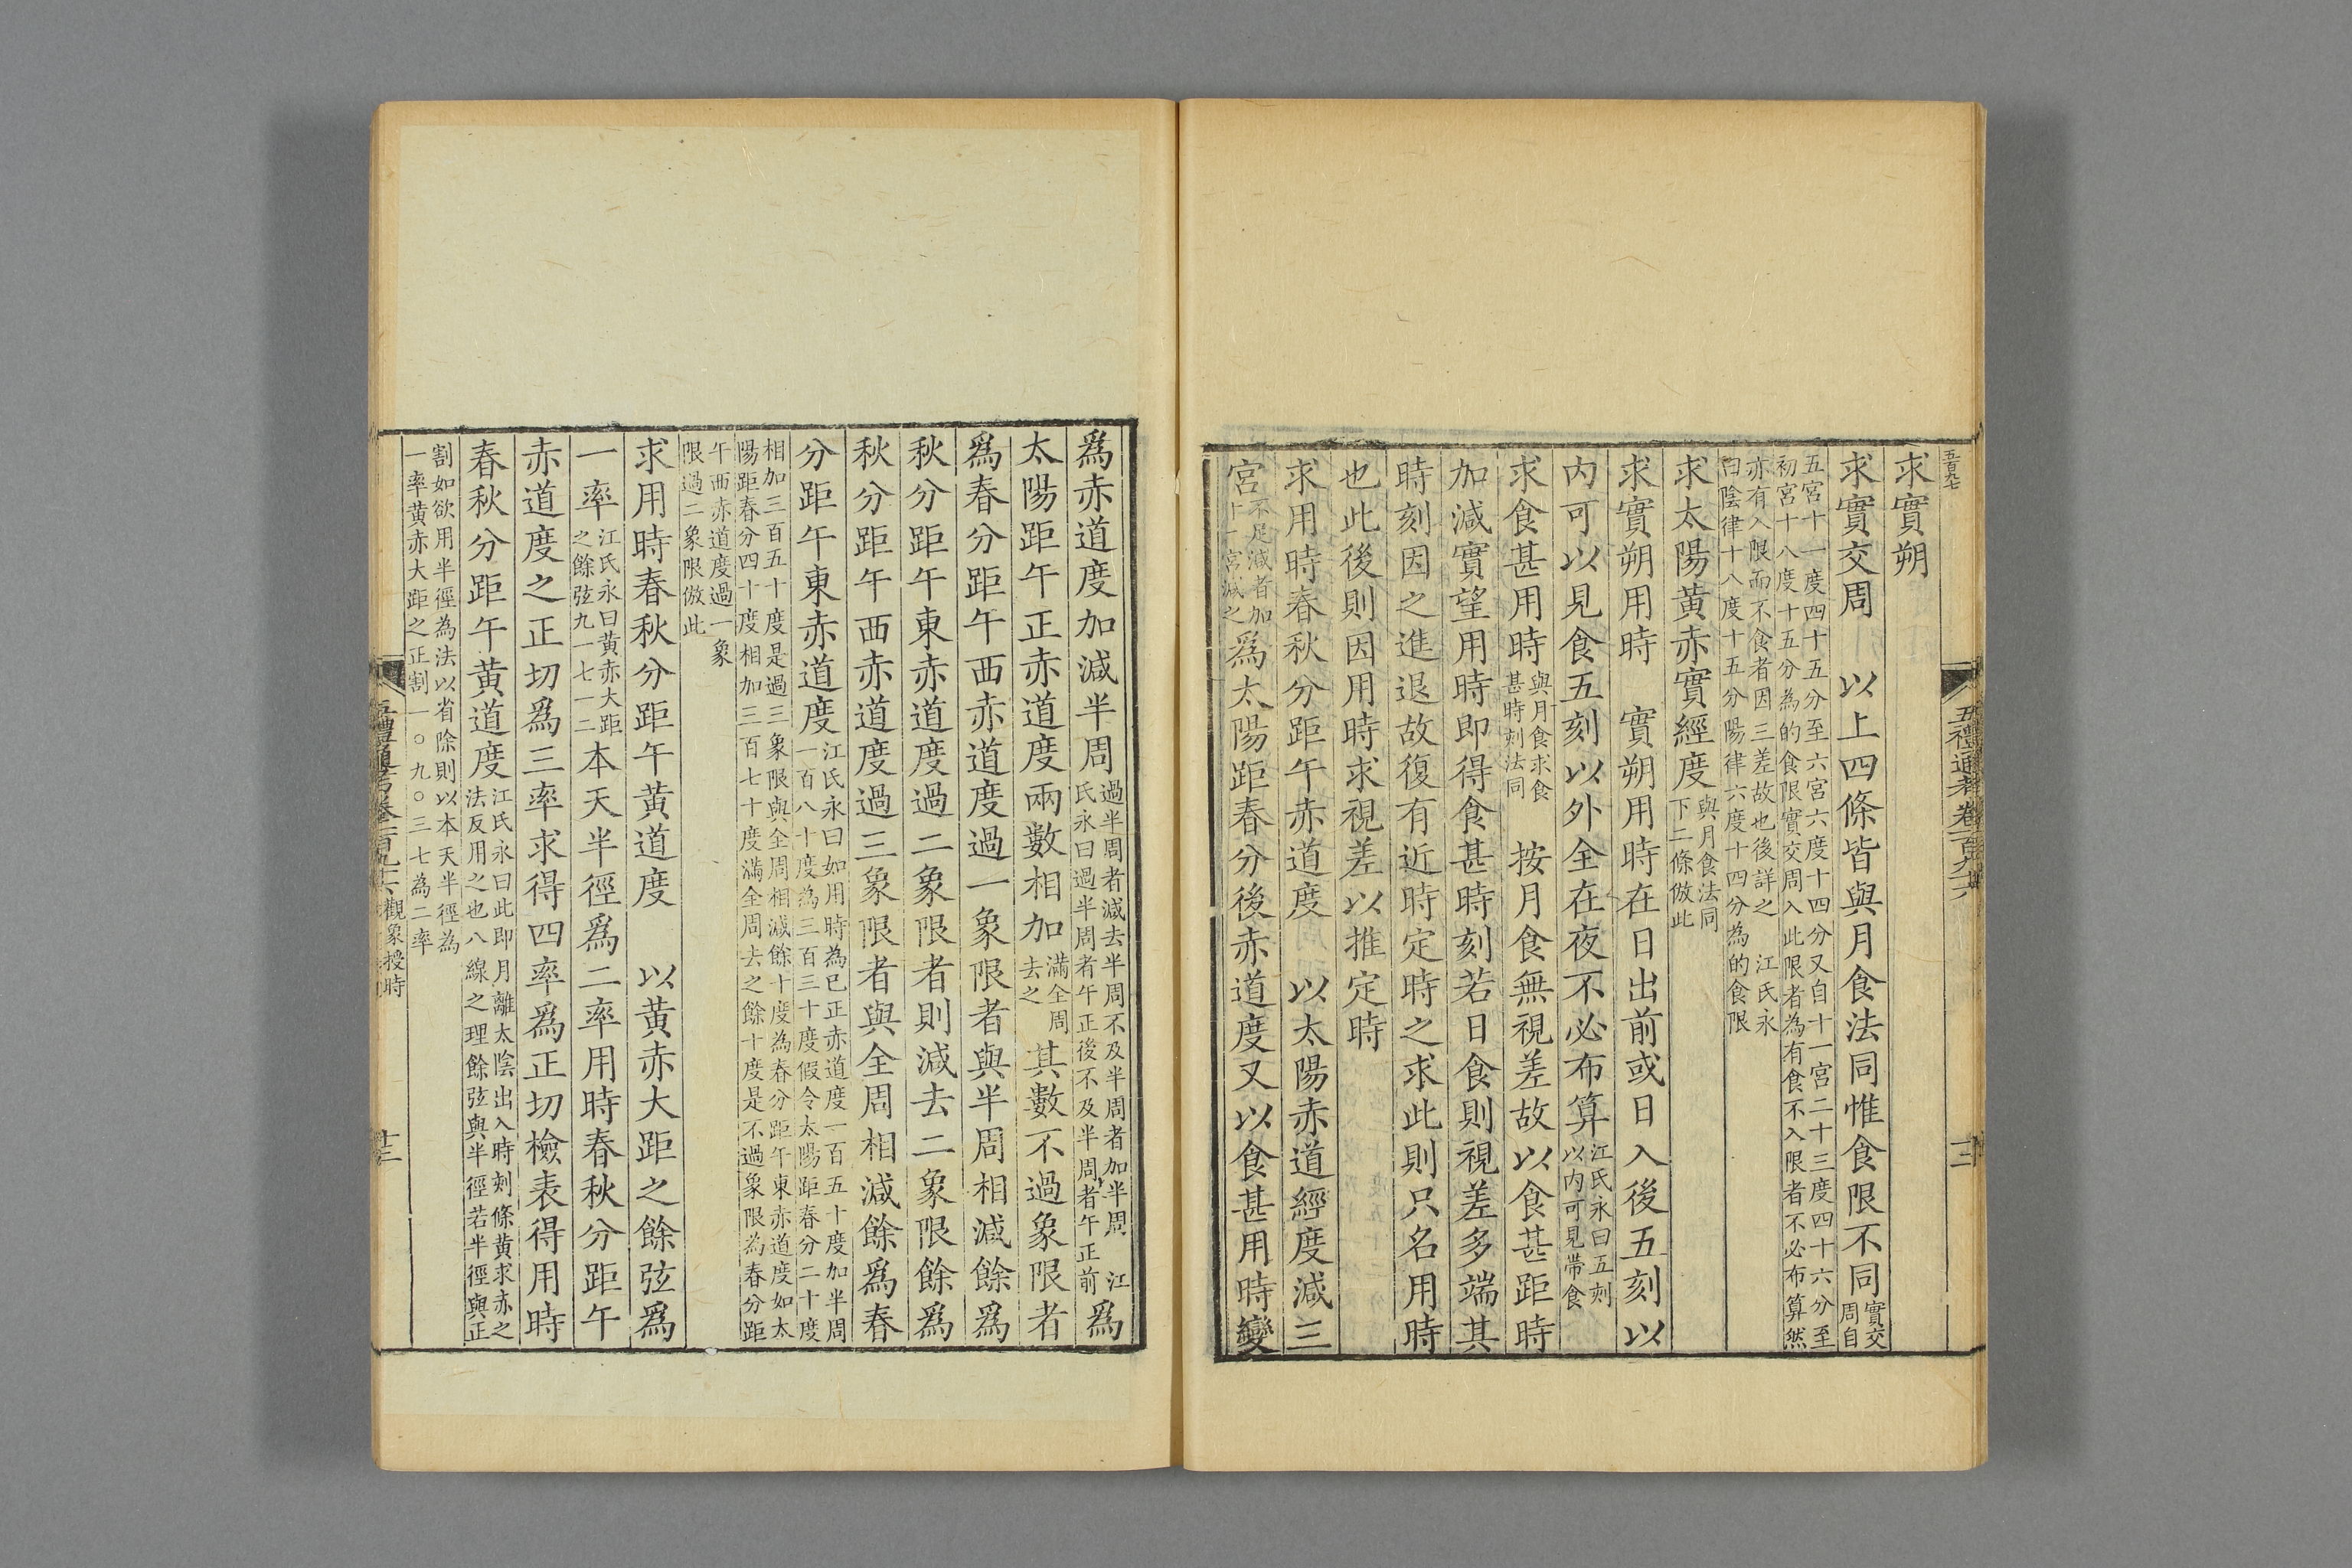 五百九七
五禮通考卷一百九十六
十二
求實朔
求實交周　以上四條皆與月食法同惟食限不同實交
周自
五宮十一度四十五分至六宮六度十四分又自十一宮二十三度四十六分至
初宮十八度十五分為的食限實交周入此限者為有食不入限者不必布算然
亦有入限而不食者因三差故也後詳之　江氏永
曰陰律十八度十五分陽律六度十四分為的食限
求太陽黃赤實經度與月食法同
下二條倣此
求實朔用時　實朔用時在日出前或日入後五刻以
内可以見食五刻以外全在夜不必布算江氏永曰五刻
以内可見帶食
求食甚用時與月食求食
甚時刻法同　按月食無視差故以食甚距時
加減實望用時即得食甚時刻若日食則視差多端其
時刻因之進退故復有近時定時之求此則只名用時
也此後則因用時求視差以推定時
求用時春秋分距午赤道度　以太陽赤道經度減三
宮不足減者加
十二宮減之爲太陽距春分後赤道度又以食甚用時變
爲赤道度加減半周過半周者減去半周不及半周者加半周　江
氏永曰過半周者午正後不及半周者午正前爲
太陽距午正赤道度兩數相加滿全周
去之其數不過象限者
爲春分距午西赤道度過一象限者與半周相減餘爲
秋分距午東赤道度過二象限者則減去二象限餘爲
秋分距午西赤道度過三象限者與全周相減餘爲春
分距午東赤道度江氏永曰如用時為巳正赤道度一百五十度加半周
一百八十度為三百三十度假令太陽距春分二十度
相加三百五十度是過三象限與全周相減餘十度為春分距午東赤道度如太
陽距春分四十度相加三百七十度滿全周去之餘十度是不過象限為春分距
午西赤道度過一象
限過二象限倣此
求用時春秋分距午黃道度　以黃赤大距之餘弦爲
一率江氏永曰黃赤大距
之餘弦九一七一二本天半徑爲二率用時春秋分距午
赤道度之正切爲三率求得四率爲正切檢表得用時
春秋分距午黃道度江氏永曰此即月離太陰出入時刻條黃求赤之
法反用之也八線之理餘弦與半徑若半徑與正
割如欲用半徑為法以省除則以本天半徑為
一率黃赤大距之正割一〇九〇三七為二率
五禮通考卷一百九十六觀象授時
十二